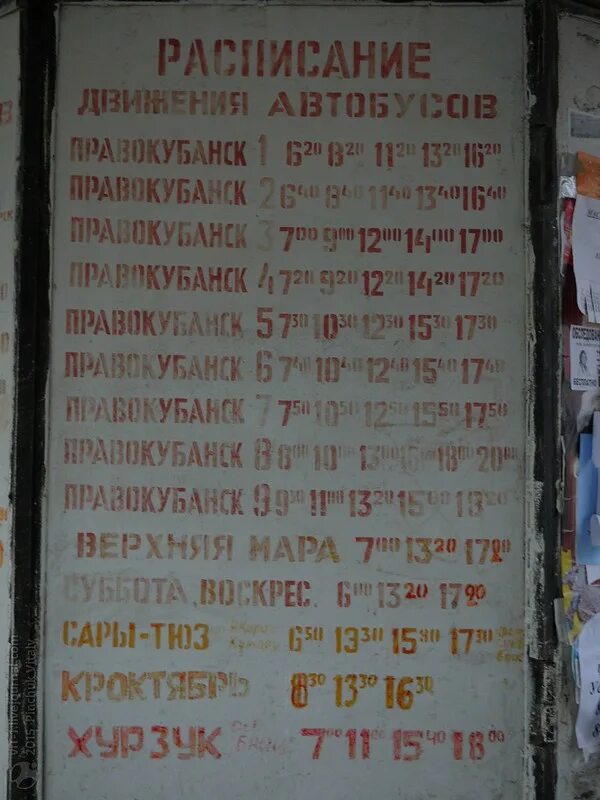 РАСПИСАНИЕ
ДВИЖЕНИЯ АВТОБУСОВ
ПРАВОКУБАНСК 1 6²⁰ 8²⁰ 11²⁰ 13²⁰ 16²⁰
ПРАВОКУБАНСК 2 6⁴⁰ 8⁴⁰ 11⁴⁰ 13⁴⁰ 16⁴⁰
ПРАВОКУБАНСК 3 7⁰⁰ 9⁰⁰ 12⁰⁰ 14⁰⁰ 17⁰⁰
ПРАВОКУБАНСК 4 7²⁰ 9²⁰ 12²⁰ 14²⁰ 17²⁰
ПРАВОКУБАНСК 5 7³⁰ 10³⁰ 12³⁰ 15³⁰ 17³⁰
ПРАВОКУБАНСК 6 7⁴⁰ 10⁴⁰ 12⁴⁰ 15⁴⁰ 17⁴⁰
ПРАВОКУБАНСК 7 7⁵⁰ 10⁵⁰ 12⁵⁰ 15⁵⁰ 17⁵⁰
ПРАВОКУБАНСК 8 8⁰⁰ 10⁰⁰ 13⁰⁰ 18⁰⁰ 20⁰⁰
ПРАВОКУБАНСК 9 9³⁰ 11⁰⁰ 13²⁰ 15⁰⁰ 18²⁰
ВЕРХНЯЯ МАРА 7⁰⁰ 13²⁰ 17²⁰
СУББОТА, ВОСКРЕС. 6⁰⁰ 13²⁰ 17²⁰
САРЫ-ТЮЗ 6⁵⁰ 13³⁰ 15³⁰ 17³⁰
КРОКТЯБРЬ 8³⁰ 13³⁰ 16³⁰
ХУРЗУК 7⁰⁰ 11⁰⁰ 15⁴⁰ 18⁰⁰
ОБСЛЕДОВАН
БЕСПЛАТНО
©2015 Pinchuk Vitaly